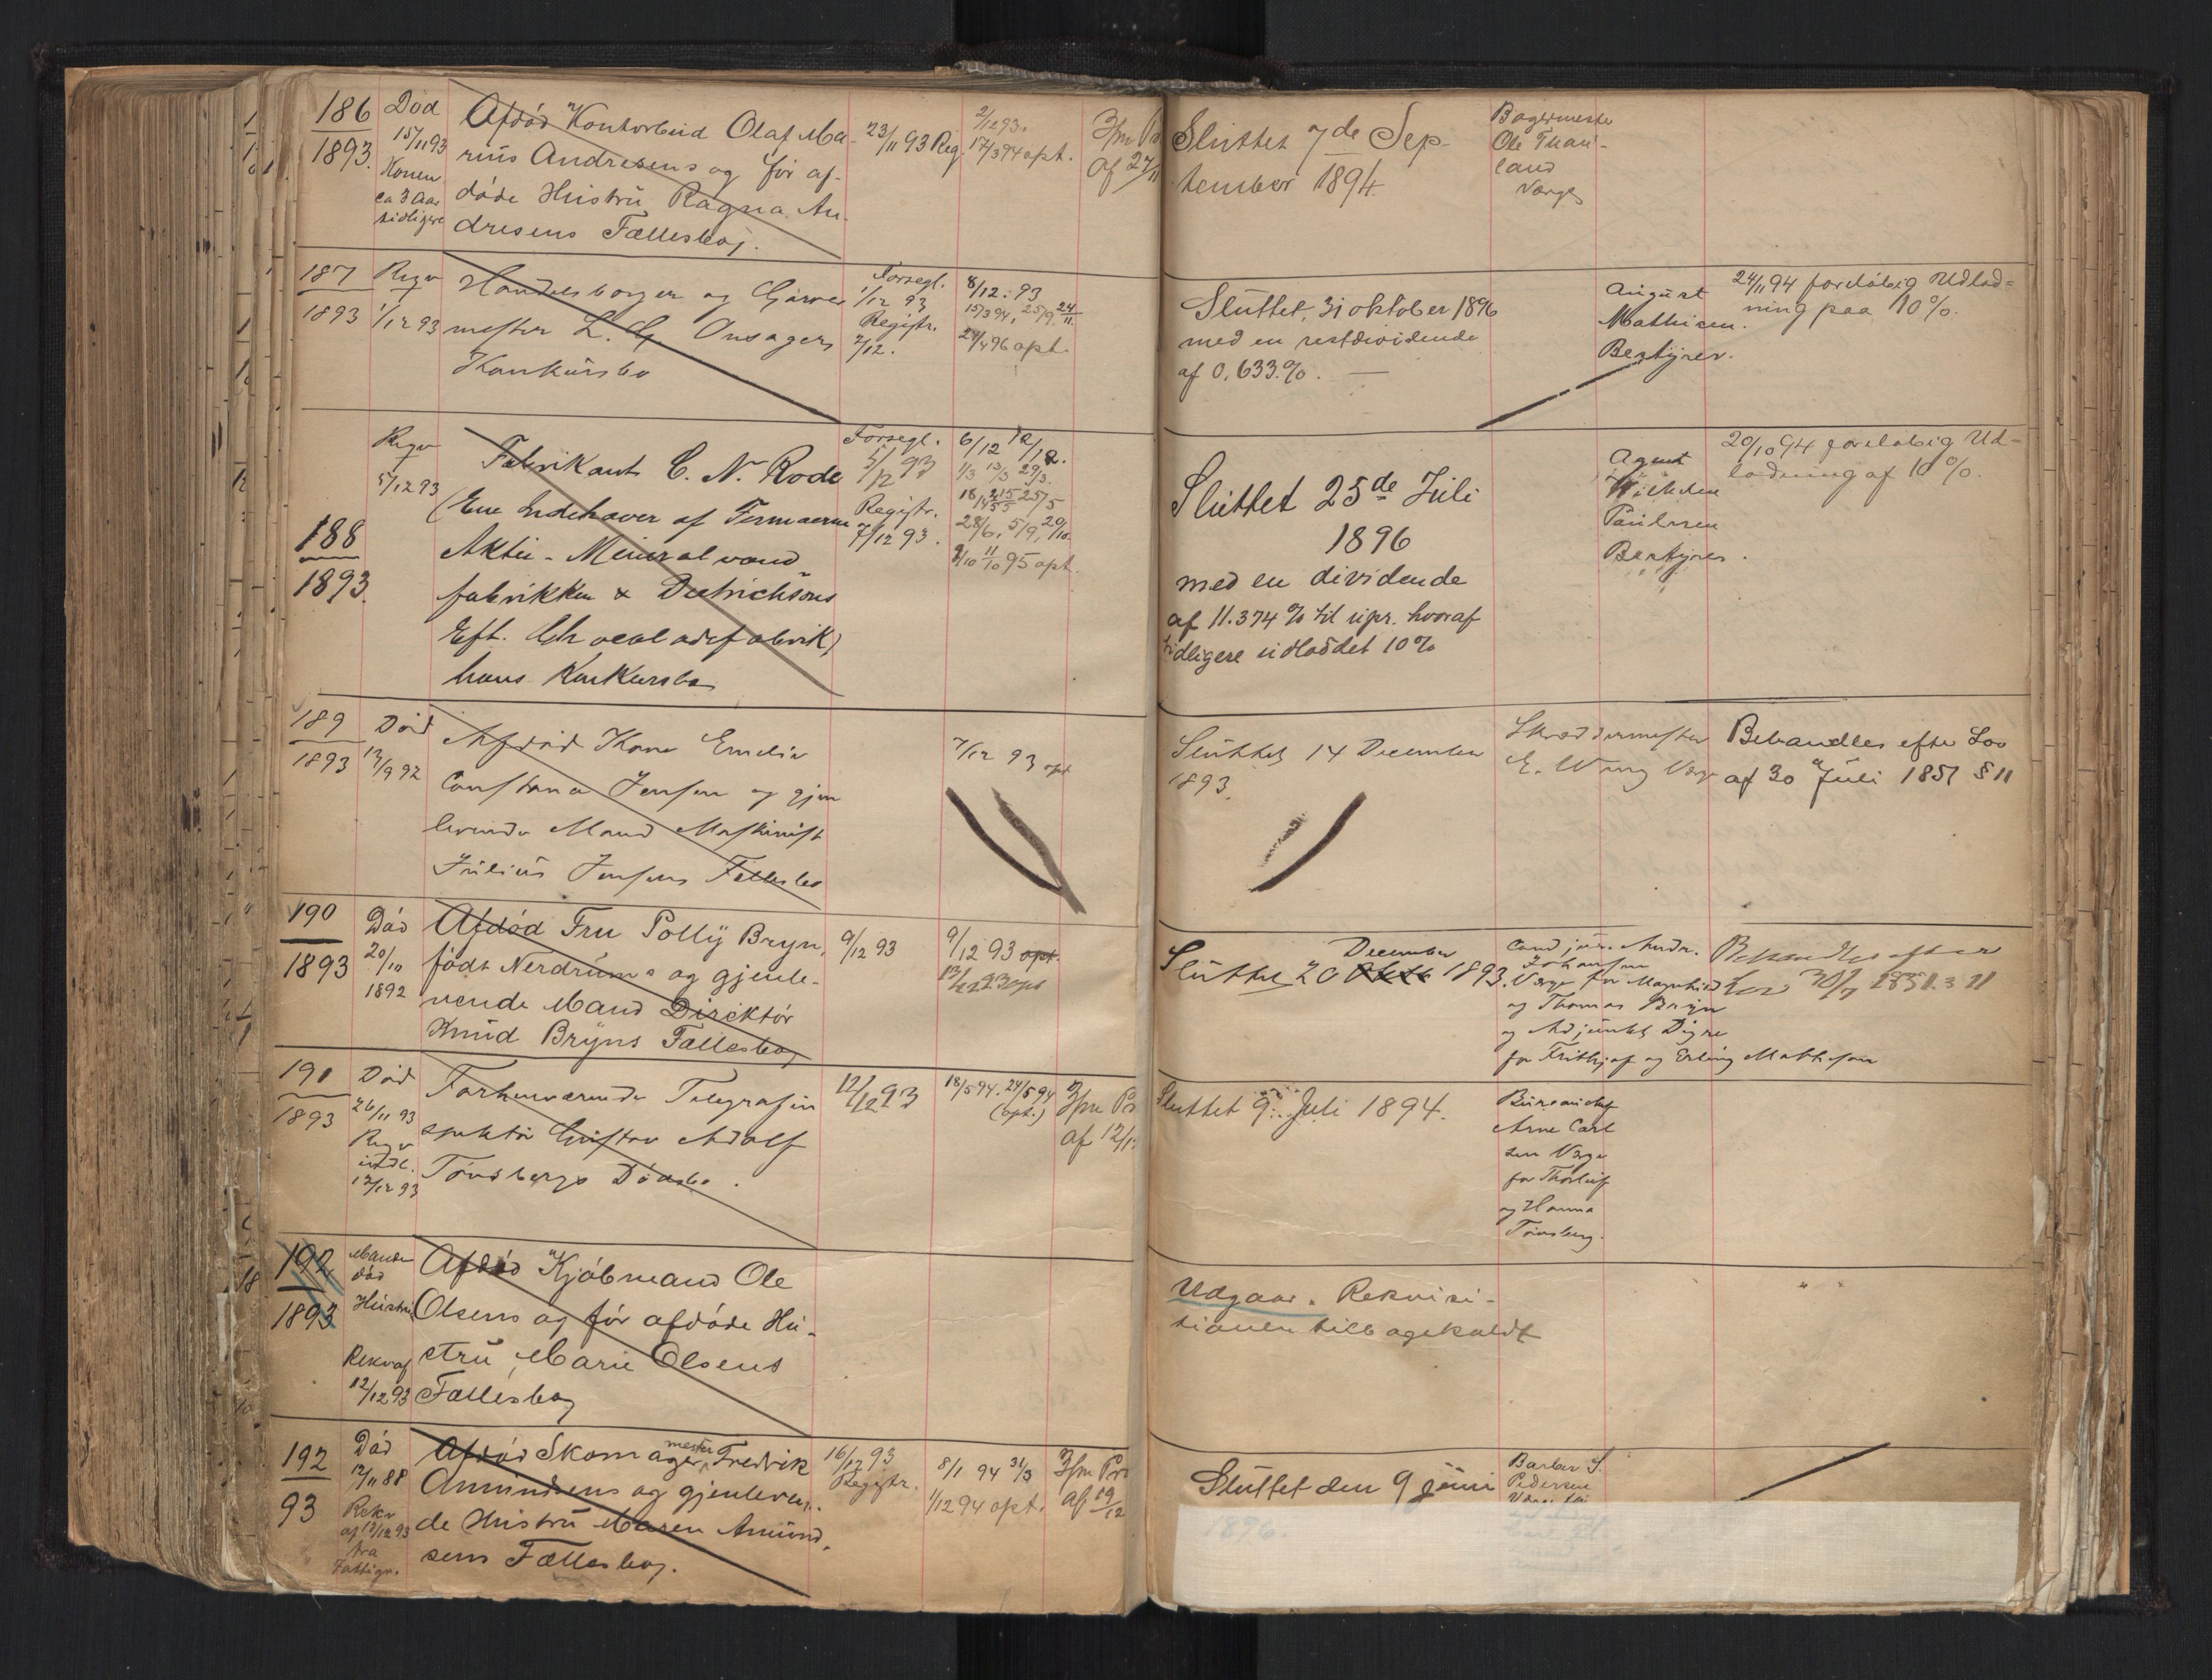 186
1893.
Død
15/11 93
Konen
ca 3 Aar
tidligere
Afdød Kontorbud Olaf Ma-
rius Andresens og før af-
døde Hustru Ragna An-
dresens Fællesbo.
23/11 93 Reg.
2/12 93.
17/3 94 opt.
3/m Pr
af 27/11
Sluttet 7de Sep-
tember 1894.
Bagermester
Ole
land
Værge
187
1893
Reqv
1/12 93
Handelsborger og Garver
mester L. G. Onsagers
Konkursbo
Forsegl.
1/12 93
Registr.
2/12.
8/12. 93
15/3 94, 25/9. 24/11.
24/4 96 opt.
Sluttet, 31 oktober 1896
med en restdividende
af 0,633 %.
August
Mathisen.
Bestyrer.
24/11 94 foreløbig Udlod=
ning paa 10 %.
188
1893.
Reqv
5/12 93
Fabrikant C. N. Rode
(Ene Indehaver af Firmaerne
Aktie-Mineralvand
fabrikken & Dietrichsons
Eft. Chocoladefabrik)
hans Konkursbo
Forsegl.
5/12 93
Registr.
7/12 93.
6/12 12/12.
1/3 13/3 29/3.
28/6, 5/9, 20/10.
11/10 95 opt.
Sluttet 25de Juli
1896
med en dividende
af 11.374 % til upr. hvoraf
tidligere udloddet 10 %
Agent
Wilhelm
Paulsen
Bestyrer.
20/10 94 foreløbig Ud=
lodning af 10 %.
189
1893
Død
13/9 92
Afdød Kone Emilie
Constance Jensen og gjen
levende Mand Maskinist
Julius Jensens Fællesbo
7/12 93 opt
Sluttet 14 December
1893.
Skreddermester
E. Wang Værge
Behandles efter Lov
af 30 Juli 1851 § 11
190
1893
Død
20/10
1892
Afdød Fru Polly Bryn,
født Nerdrums og gjenle-
vende Mand Direktør
Knud Bryns Fællesbo
9/12 93
9/12 93 opt.
13/12 93 opt
December
Sluttet 20 1893.
Cand jur. Andr.
Johansen
Værge for Magnhild
og Thomas Bryn
og Adjunkt Digre
for Frithjof og Erling Mathisen
Behandles efter
Lov 30/7 1851 § 11
191
1893
Død
26/11 93
Reqv
indl.
12/12 93
Forhenværende Telegrafin
spektør Gustav Adolf
Tønsbergs Dødsbo.
12/12 93
18/5 94. 24/5 94
(opt.)
3/m Pr
af 12/12
Sluttet 9. Juli 1894.
Bureauchef
Arne Carl
sen Værge
for Thorleif
og Hanna
Tønsberg.
192
1893
Manden
død
Hustru
Rekv af
12/12 93
Afdød Kjøbmand Ole
Olsens og før afdøde Hu-
stru Marie Olsens
Fællesbo
Udgaar. Rekvisi-
tionen tilbagekaldt
" "
192
93
Død
12/11 88
Rekv
af 12/12 93
fra
Fattigv.
Afdød Skomagermester Fredrik
Amundsens og gjenleven-
de Hustru Maren Amund-
sens Fællesbo.
16/12 93
Registr.
8/1 94 31/3
1/12 94 opt.
3/m Pro
af 19/12
Sluttet den 9 juni
1896.
Barber S.
Pedersen